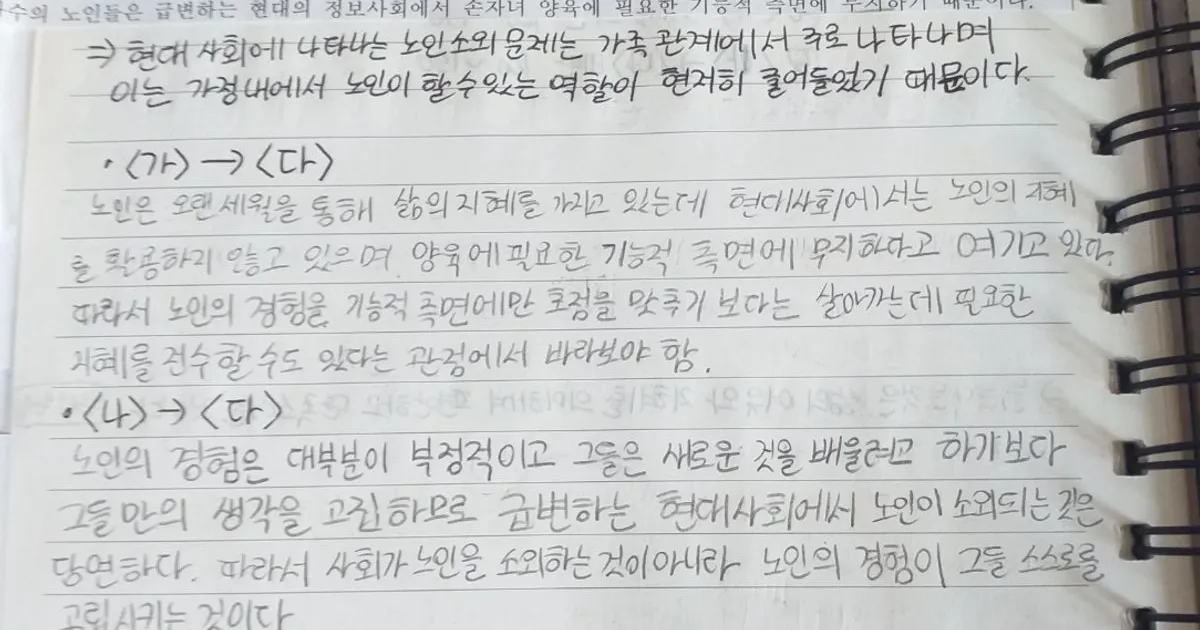 수의 노인들은 급변하는 현대의 정보사회에서 손자녀 양육에 필요한 기능적 측면에 무지하기 때문이다.
⇒ 현대 사회에 나타나는 노인소외 문제는 가족 관계에서 주로 나타나며
이는 가정내에서 노인이 할 수 있는 역할이 현저히 줄어들었기 때문이다.
· <가> → <다>
노인은 오랜 세월을 통해 삶의 지혜를 가지고 있는데 현대사회에서는 노인의 지혜
를 활용하지 않고 있으며 양육에 필요한 기능적 측면에 무지하다고 여기고 있다.
따라서 노인의 경험을 기능적 측면에만 초점을 맞추기 보다는 살아가는데 필요한
지혜를 전수할 수도 있다는 관점에서 바라보아야 함.
· <나> → <다>
노인의 경험은 대부분이 부정적이고 그들은 새로운 것을 배울려고 하기보다
그들만의 생각을 고집하므로 급변하는 현대사회에서 노인이 소외되는 것은
당연하다. 따라서 사회가 노인을 소외하는 것이 아니라 노인의 경험이 그들 스스로를
고립시키는 것이다